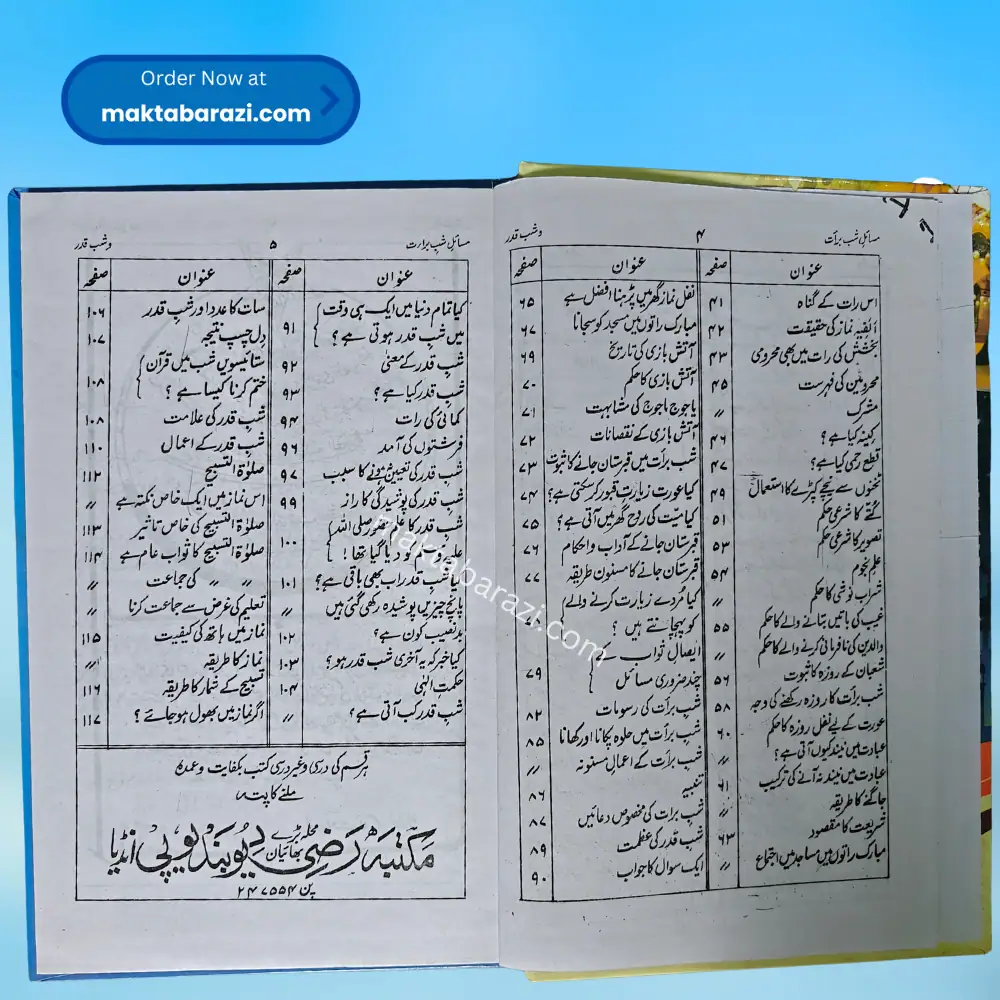 Order Now at
maktabarazi.com
مسائل شب برأت ۴ وشب قدر
عنوان صفحہ عنوان صفحہ
اس رات کے گناہ ۴۱
الفیہ نماز کی حقیقت ۴۲
بخشش کی رات میں بھی محرومی ۴۳
محرومین کی فہرست ۴۵
مشرک 〃
کینہ کیا ہے؟ ۴۶
قطع رحمی کیا ہے؟ ۴۷
ٹخنوں سے نیچے کپڑے کا استعمال ۴۹
کتے کا شرعی حکم ۵۱
تصویر کا شرعی حکم ۵۳
علم نجوم ۵۴
شراب نوشی کا حکم 〃
غیب کی باتیں بتانے والے کا حکم ۵۵
والدین کی نافرمانی کرنے والے کا حکم 〃
شعبان کے روزہ کا ثبوت ۵۶
شب برأت کا روزہ رکھنے کی وجہ ۵۸
عورت کے لیے نفل روزہ کا حکم ۶۰
عبادت میں نیند کیوں آتی ہے؟ 〃
عبادت میں نیند نہ آنے کی ترکیب ۶۱
جاگنے کا طریقہ 〃
شریعت کا مقصود ۶۳
مبارک راتوں میں مساجد میں اجتماع 〃
نفل نماز گھر میں پڑھنا افضل ہے ۶۵
مبارک راتوں میں مسجد کو سجانا ۶۷
آتش بازی کی تاریخ ۶۹
آتش بازی کا حکم ۷۰
یاجوج ماجوج کی مشابہت ۷۱
آتش بازی کے نقصانات ۷۲
شب برأت میں قبرستان جانے کا ثبوت ۷۳
کیا عورت زیارت قبور کر سکتی ہے؟ ۷۴
کیا میت کی روح گھر میں آتی ہے؟ ۷۵
قبرستان جانے کے آداب و احکام ۷۶
قبرستان جانے کا مسنون طریقہ ۷۷
کیا مُردے زیارت کرنے والے
کو پہچانتے ہیں؟
ایصال ثواب کے
چند ضروری مسائل ۷۹
شب برأت کی رسومات ۸۲
شب برأت میں حلوہ پکانا اور کھانا ۸۵
شب برأت کے اعمال مسنونہ 〃
تنبیہ ۸۶
شب برات کی مخصوص دعائیں ۸۷
شب قدر کی عظمت ۸۹
ایک سوال کا جواب ۹۰
مسائل شب برارت ۵ وشب قدر
عنوان صفحہ عنوان صفحہ
کیا تمام دنیا میں ایک ہی وقت
میں شب قدر ہوتی ہے؟ ۹۱
شب قدر کے معنیٰ ۹۲
شب قدر کیا ہے؟ ۹۳
کمائی کی رات ۹۴
فرشتوں کی آمد ۹۶
شب قدر کی تعیین نہ ہونے کا سبب ۹۷
شب قدر کی پوشیدگی کا راز ۹۹
شب قدر کا علم حضور صلی اللہ
علیہ وسلم کو دیا گیا تھا! ۱۰۰
کیا شب قدر اب بھی باقی ہے؟ ۱۰۱
پانچ چیزیں پوشیدہ رکھی گئی ہیں 〃
بدنصیب کون ہے؟ ۱۰۲
کیا خبر کہ یہ آخری شب قدر ہو؟ ۱۰۳
حکمت الٰہی ۱۰۴
شب قدر کب آتی ہے؟ 〃
سات کا عدد اور شب قدر ۱۰۶
دل چسپ نتیجہ ۱۰۷
ستائیسویں شب میں قرآن
ختم کرنا کیسا ہے؟ ۱۰۸
شب قدر کی علامت ۱۰۸
شب قدر کے اعمال ۱۱۰
صلوٰۃ التسبیح ۱۱۲
اس نماز میں ایک خاص نکتہ ہے 〃
صلوٰۃ التسبیح کی خاص تاثیر ۱۱۳
صلوٰۃ التسبیح کا ثواب عام ہے ۱۱۴
〃 〃 کی جماعت 〃
تعلیم کی غرض سے جماعت کرنا 〃
نماز میں ہاتھ کی کیفیت ۱۱۵
نماز کا طریقہ 〃
تسبیح کے شمار کا طریقہ ۱۱۶
اگر نماز میں بھول ہو جائے؟ ۱۱۷
ہر قسم کی درسی و غیر درسی کتب بکفایت و عمدہ
ملنے کا پتہ
مکتبہ رضی محلہ بڑے بھائیان دیوبند یوپی انڈیا
پن ۲۴۷۵۵۴
maktabarazi.com